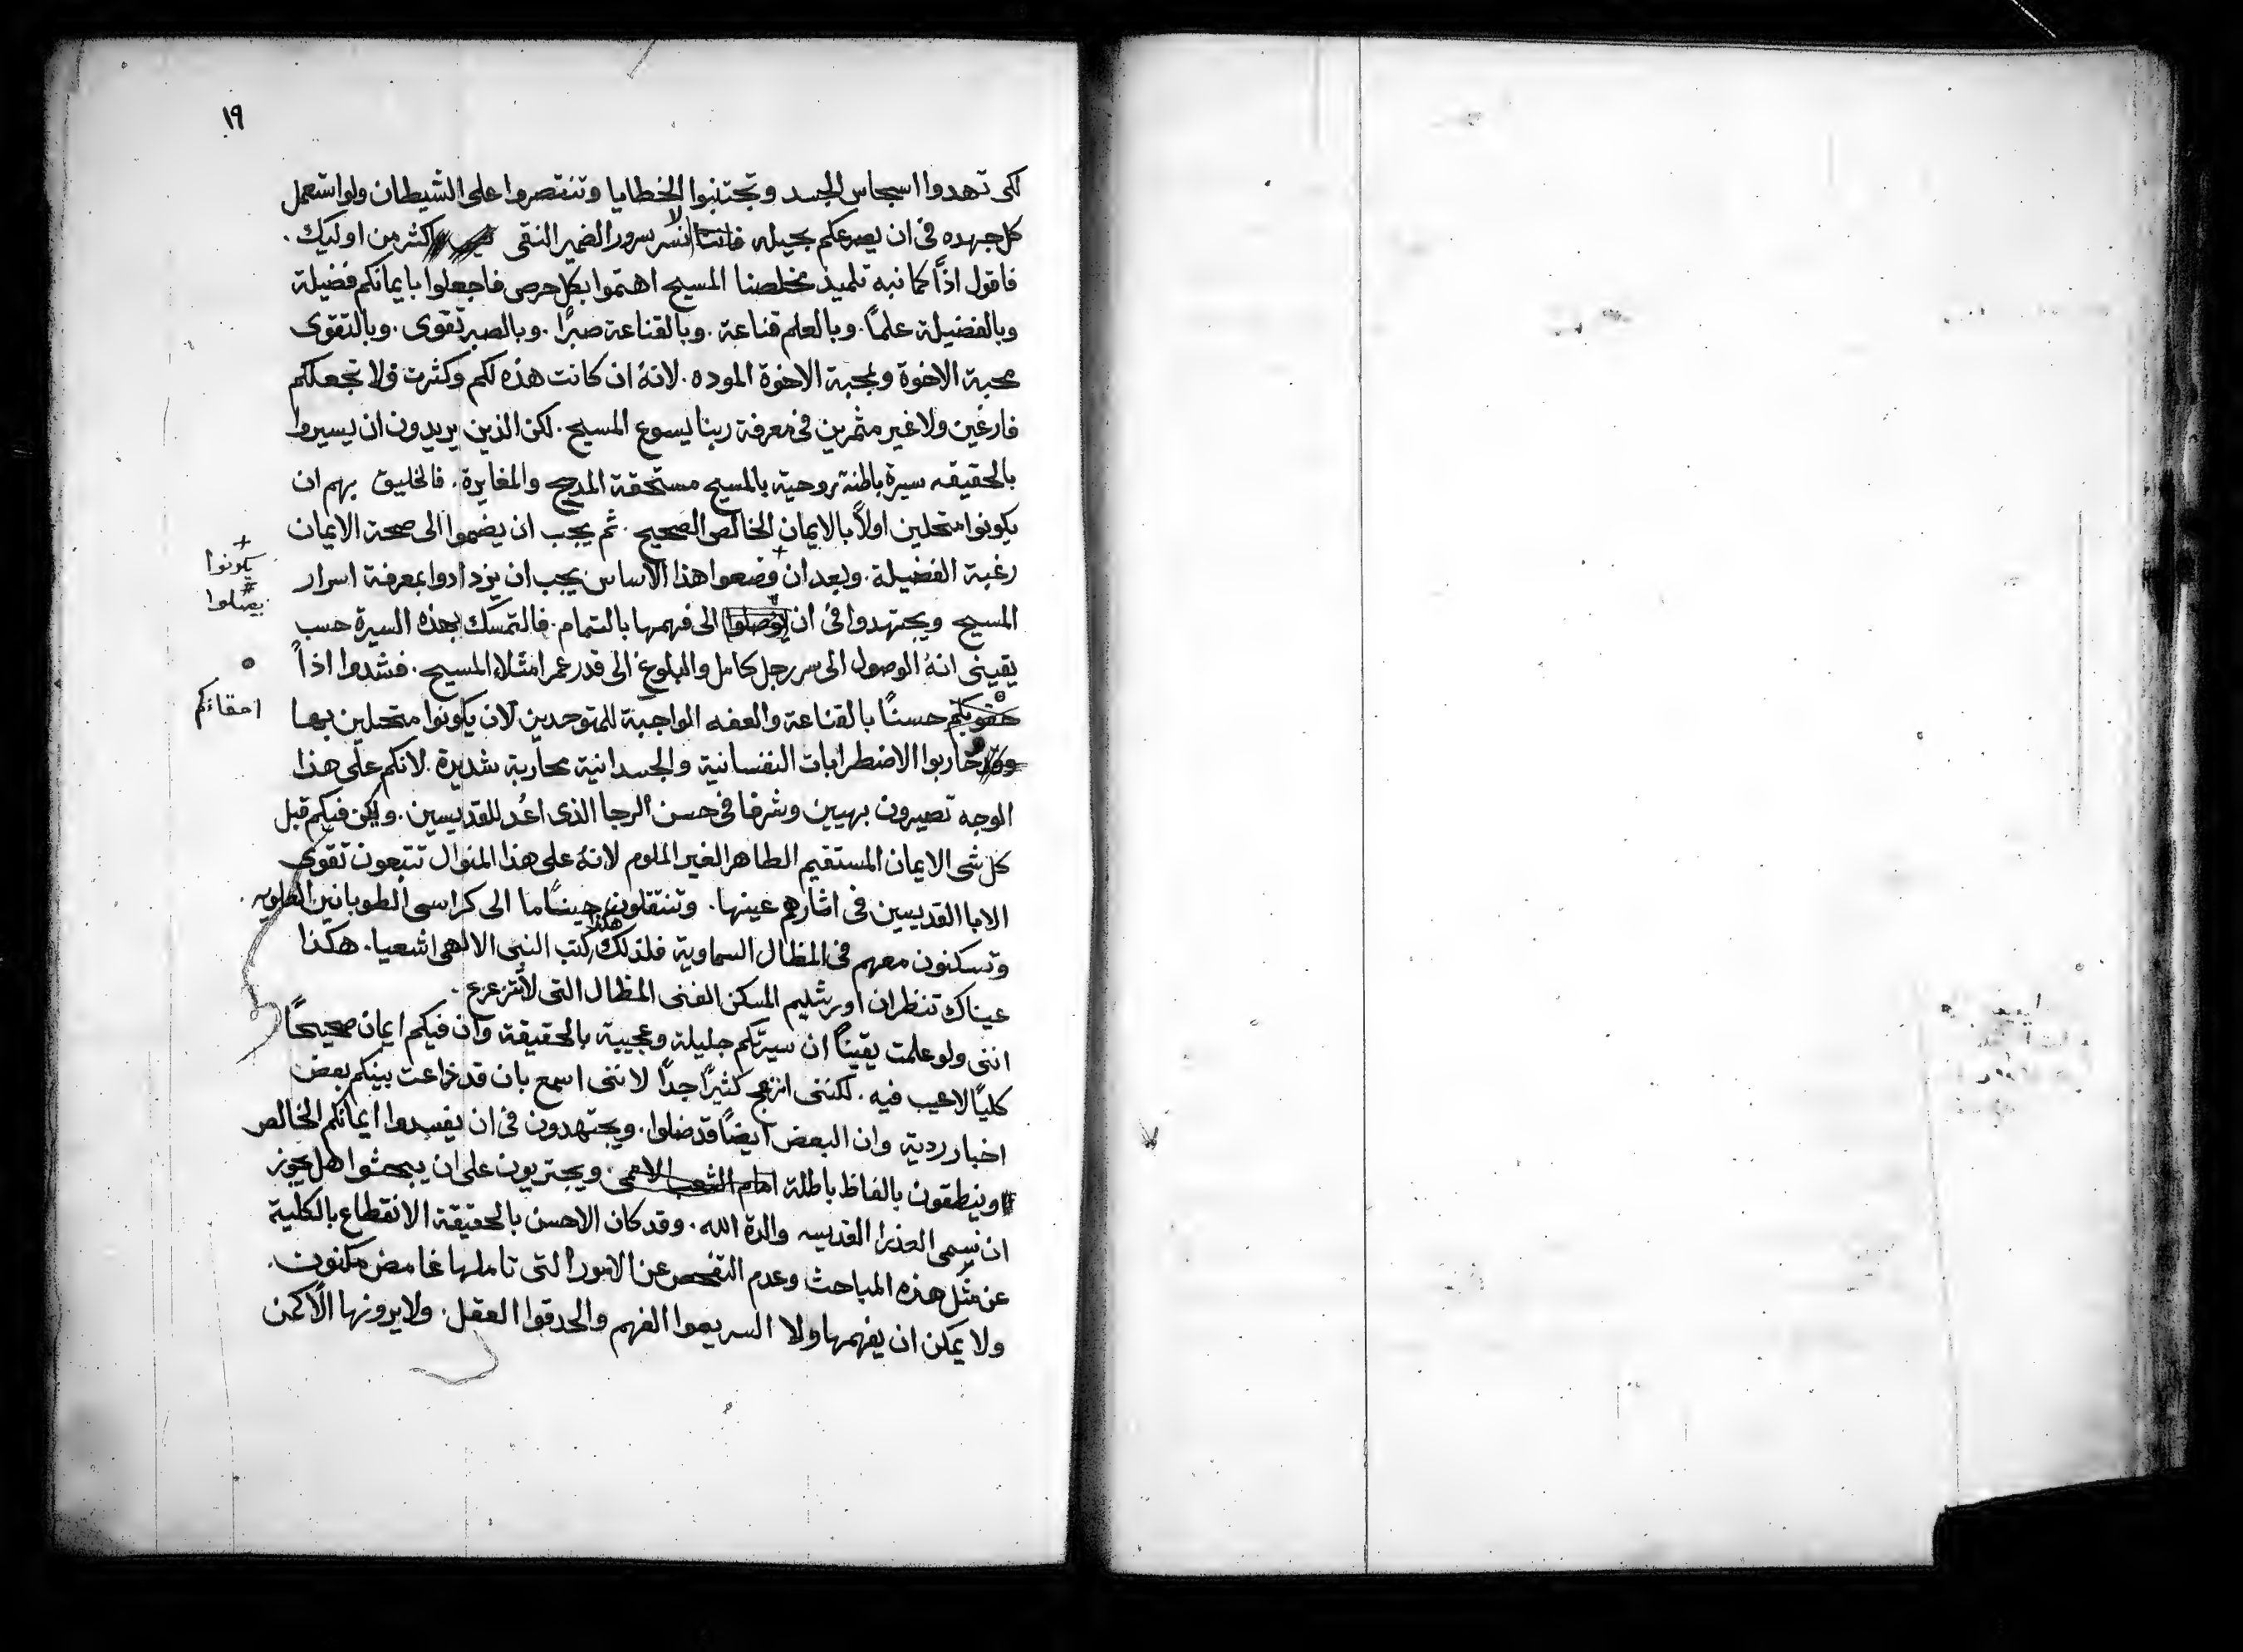 ١٩
لكى تهدوا اسجاس الجسد وتجتنبوا الخطايا وتنتصروا على الشيطان ولو استعمل
كل جهده فى ان يصرعكم بحيله فاننا لا نسر بسرور الضمير النقى اكثر من اوليك.
فاقول اذاً كما نبه تلميذ مخلصنا المسيح اهتموا بكل حرص فاجعلوا بايمانكم فضيلة
وبالفضيلة علماً. وبالعلم قناعة. وبالقناعة صبرًا. وبالصبر تقوى. وبالتقوى
محبة الاخوة وبمحبة الاخوة الموده. لانهُ ان كانت هذه لكم وكثرت فلا تجعلكم
فارغين ولا غير مثمرين فى معرفة ربنا يسوع المسيح. لكن الذين يريدون ان يسيروا
بالحقيقه سيرة باطنة روحية بالمسيح مستحقة المدح والمغايرة. فالخليق بهم ان
يكونوا متحلين اولاً بالايمان الخالص الصحيح. ثم يجب ان يضموا الى صحة الايمان
رغبة الفضيلة. وبعد ان + وضعوا هذا الاساس يجب ان يزدادوا بمعرفة اسرار
+ يكونوا
المسيح ويجتهدوا فى ان يوصلوا الى فهمها بالتمام. فالتمسك بهذه السيرة حسب
# يصلوا
يقينى انهُ الوصول الى سر رجل كامل والبلوغ الى قدر عمر امتلاء المسيح. فشدوا اذاً
حقويكم حسنًا بالقناعة والعفه الواجبة للمتوحدين لان يكونوا متحلين بها
احقاءكم
وحاربوا الاضطرابات النفسانية والجسدانية محاربة شديدة. لانكم على هذا
الوجه تصيرون بهيين وشرفا فى حسن الرجا الذى اعُد للقديسين. وليكن فيكم قبل
كل شى الايمان المستقيم الطاهر الغير الملوم لانهُ على هذا المنوال تتبعون تقوى
الابا القديسين فى اثارهم عينها. وتنتقلون حينًا ما الى كراسى الطوبانيين العلويه.
وتسكنون معهم فى المظال السماوية فلذلك هكذا كتب النبى الالهى اشعيا. هكذا
عيناك تنظران اورشليم المسكن الغنى المظال التى لا تتزعزع.
اننى ولو علمت يقينًا ان سيرتكم جليلة وعجيبة بالحقيقة وان فيكم ايمان صحيحًا
كليًا لا عيب فيه. لكننى انزعج كثيرًا جدًا لاننى اسمع بان قد ذاعت بينكم بعض
اخبار ردية وان البعض ايضًا قد ضلوا. ويجتهدون فى ان يفسدوا ايمانكم الخالص
وينطقون بالفاظ باطلة امام الشعب الامى. ويجتريون على ان يبحثوا هل يجوز
ان نسمى العذرا القديسه والدة الله. وقد كان الاحسن بالحقيقة الانقطاع بالكلية
عن مثل هذه المباحث وعدم التفحص عن الامور التى تاملها غامض مكنون.
ولا يمكن ان يفهمها ولا السريعوا الفهم والحدقوا العقل. ولا يرونها الا كمن